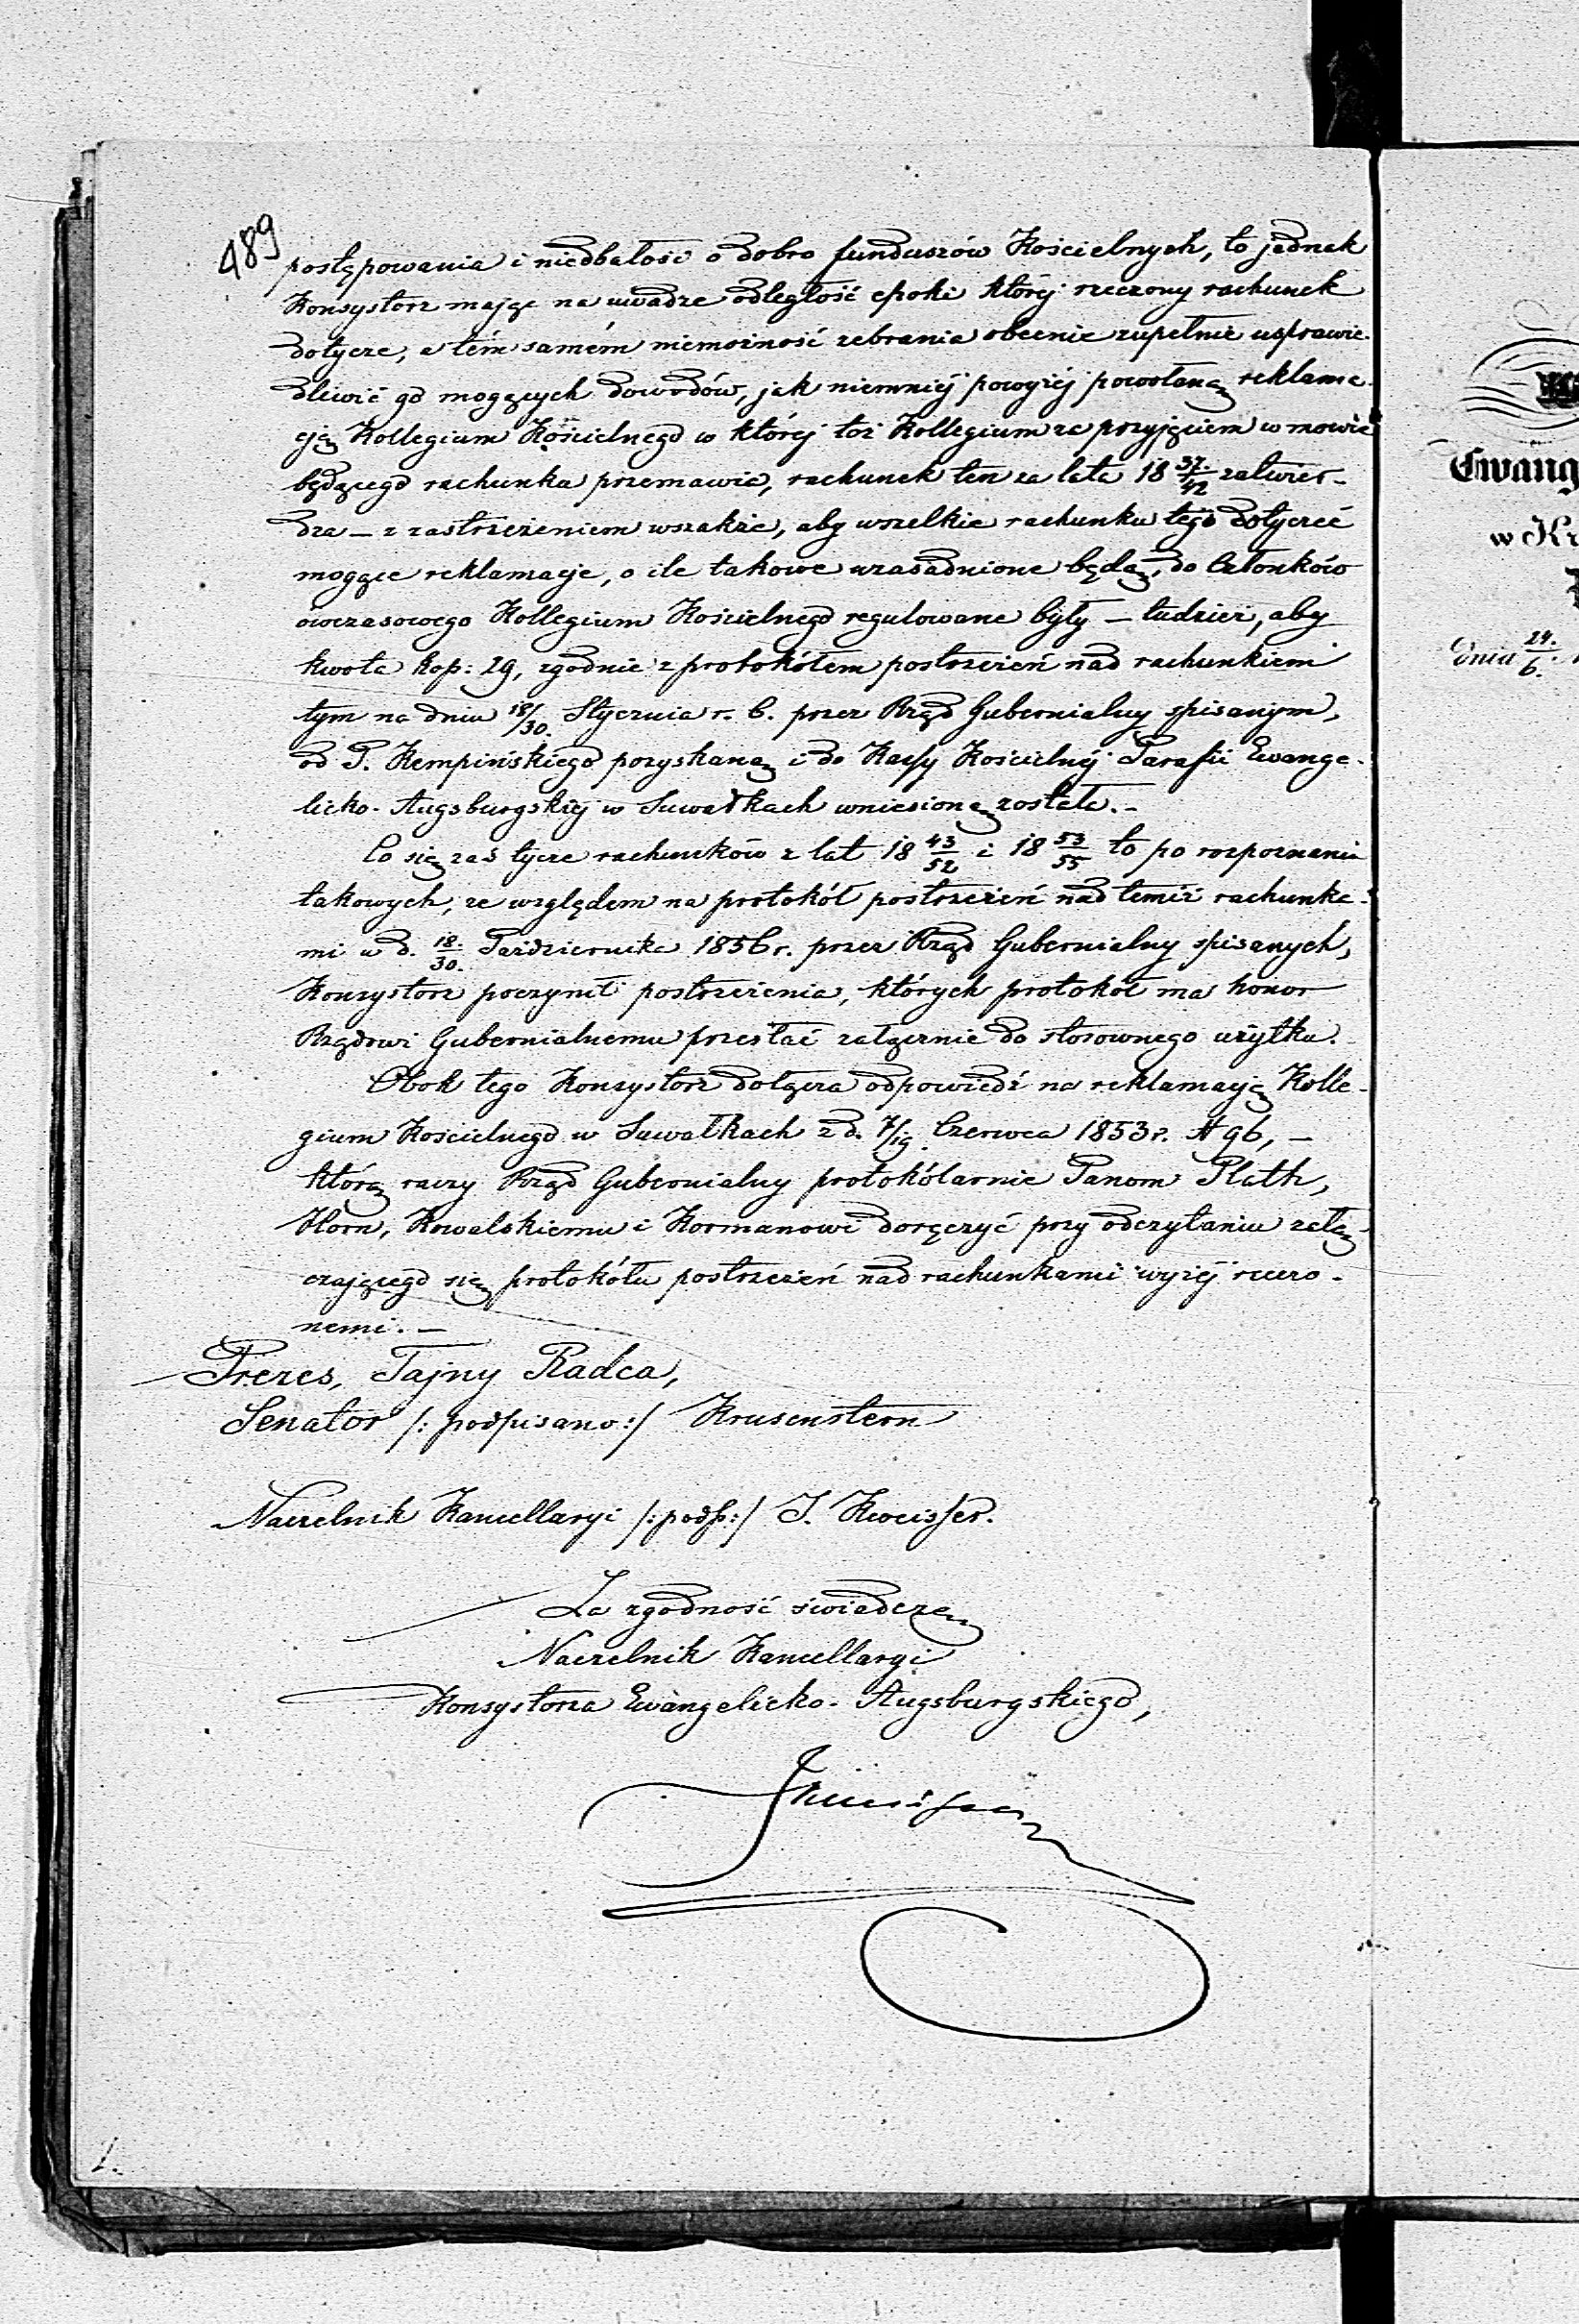 489
postępowania i niedbałość o dobro funduszów Kościelnych, to jednak
Konsystorz mając na uwadze odległość epoki której rzeczony rachunek
dotycze, a tém samém niemożność zebrania obecnie zupełnie usprawie-
dliwić go mogących dowodów, jak niemniéj powyżéj powołaną reklama-
cją Kollegium Kościelnego w której toż Kollegium za przyjęciem w mowie
będącego rachunku przemawia, rachunek ten za lata 18 37/42 zatwier-
dza – z zastrzeżeniem wszakże, aby wszelkie rachunku tego dotyczeć
mogące reklamacje, o ile takowe uzasadnione będą, do Członków
ówczasowego Kollegium Kościelnego regulowane były – tudzież, aby
kwota kop: 29, zgodnie z protokółem postrzeżeń nad rachunkiem
tym na dniu 18/30. Stycznia r. b. przez Rząd Gubernialny spisanym,
od P. Kempińskiego pozyskaną i do Kassy Kościelnéj Parafii Ewange-
licko-Augsburgskiéj w Suwałkach wniesioną została.–
Co się zaś tycze rachunków z lat 18 43/52 i 18 53/55 to po rozpoznaniu
takowych, ze względem na protokół postrzeżeń nad temiż rachunka-
mi w d. 18/30. Października 1856 r. przez Rząd Gubernialny spisanych,
Konsystorz poczynił postrzeżenia, których protokół ma honor
Rządowi Gubernialnemu przesłać załącznie do stosownego użytku.
Obok tego Konsystorz dołącza odpowiedź na reklamacją Kolle-
gium Kościelnego w Suwałkach z d. 7/19. Czerwca 1853 r. N 96, –
którą raczy Rząd Gubernialny protokólarnie Panom Plath,
Horn, Kowalskiemu i Kormanowi doręczyć przy odczytaniu załą-
czającego się protokółu postrzeżeń nad rachunkami wyżéj rzeczo-
nemi. –
Prezes, Tajny Radca,
Senator /: podpisano :/ Krusenstern
Naczelnik Kancellaryi /: podp: :/ J. Kweisser.
Za zgodność świadczę
Naczelnik Kancellaryi
Konsystorza Ewangelicko-Augsburgskiego,
1.
Ewang
w Kr
Dnia 24./6.